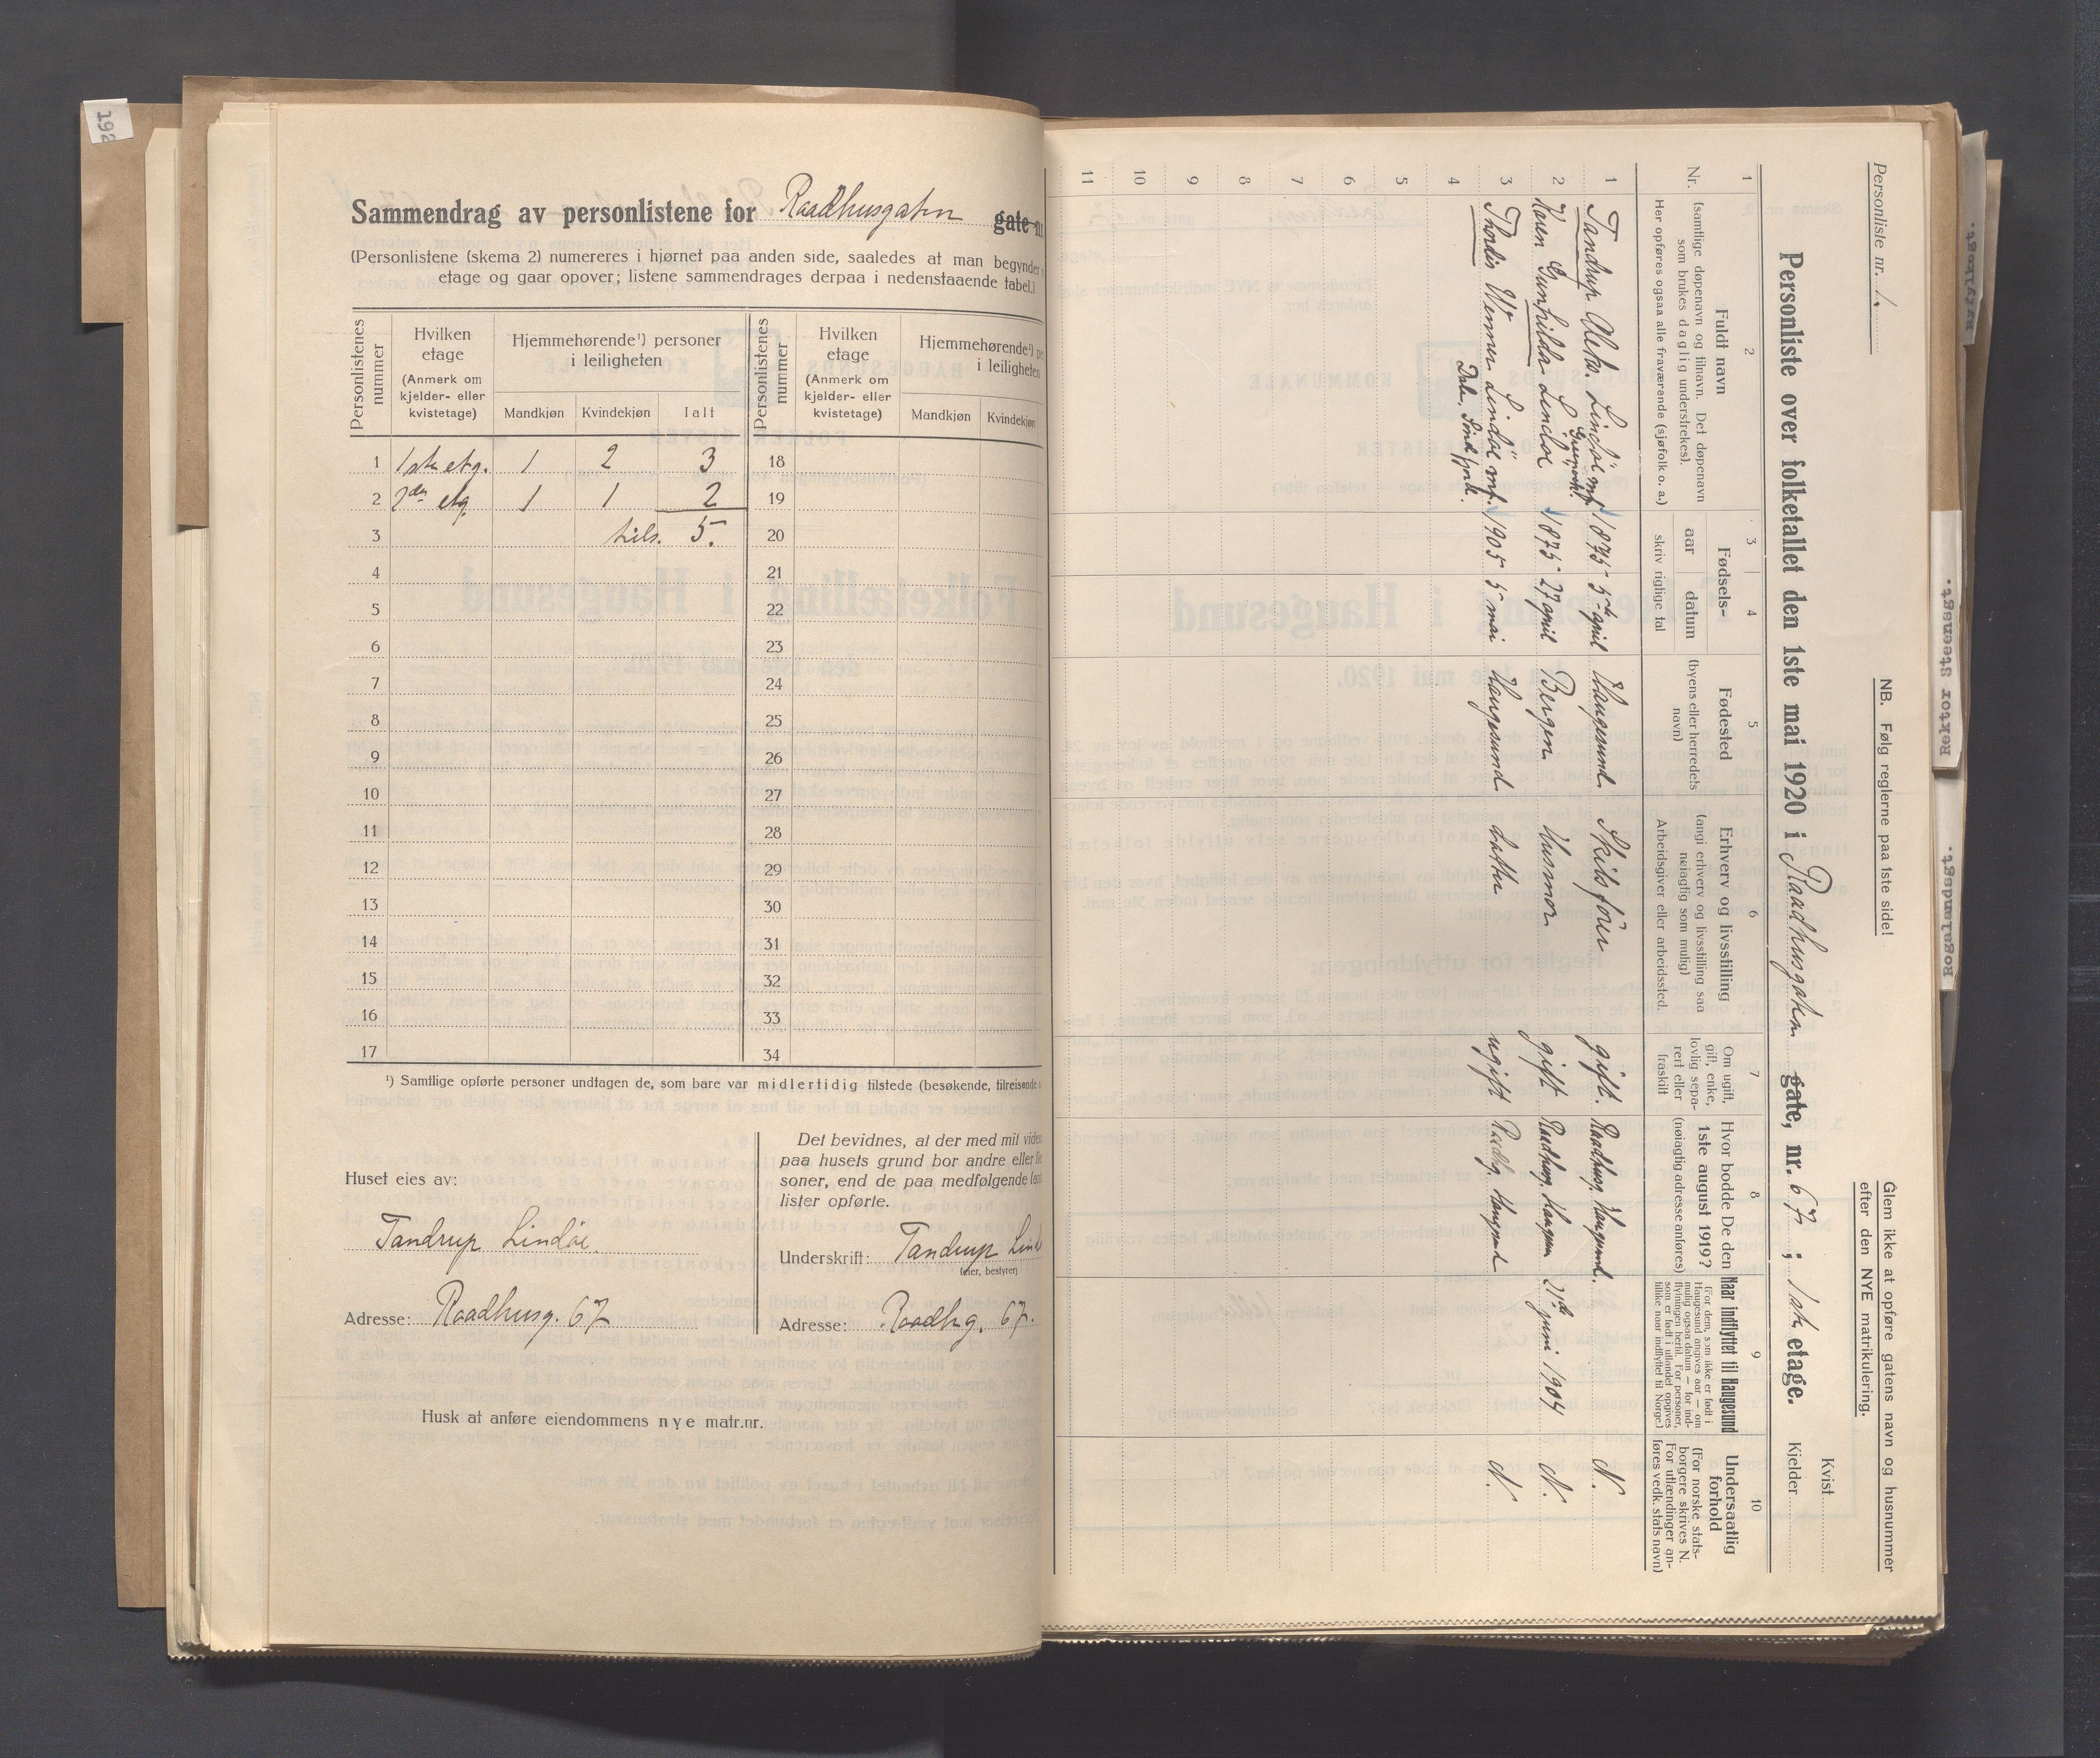 192
Sammendrag av personlistene for Raadhusgaten gate nr.
(Personlistene (skema 2) numereres i hjørnet paa anden side, saaledes at man begynder
etage og gaar opover; listene sammendrages derpaa i nedenstaaende tabel.)
Personlistenes nummer
Hvilken etage (Anmerk om kjelder- eller kvistetage)
Hjemmehørende¹) personer i leiligheten
Mandkjøn Kvindekjøn Ialt
Personlistenes nummer
Hvilken etage (Anmerk om kjelder- eller kvistetage)
Hjemmehørende¹) i leiligheten
Mandkjøn Kvindekjøn
1 1ste etg. 1 2 3 18
2 2den etg. 1 1 2 19
3 tils. 5. 20
4 21
5 22
6 23
7 24
8 25
9 26
10 27
11 28
12 29
13 30
14 31
15 32
16 33
17 34
¹) Samtlige opførte personer undtagen de, som bare var midlertidig tilstede (besøkende, tilreisende
Huset eies av:
Tandrup Lindøe.
Adresse: Raadhusg. 67
Det bevidnes, at der med mit viden
paa husets grund bor andre eller fle
soner, end de paa medfølgende
lister opførte.
Underskrift: Tandrup Lind
(eier, bestyrer)
Adresse: Raadhg. 67.
Husk at anføre eiendommens nye matr.nr.
Personliste nr. 1.
NB. Følg reglerne paa 1ste side!
Glem ikke at opføre gatens navn og husnummer
efter den NYE matrikulering.
Personliste over folketallet den 1ste mai 1920 i Raadhusgaten gate, nr. 67; 1ste etage.
Kvist
Kjelder
1 2 3 4 5 6 7 8 9 10
Nr.
Fuldt navn
(samtlige døpenavn og tilnavn. Det døpenavn
som brukes daglig understrekes).
Her opføres ogsaa alle fraværende (sjøfolk o. a.)
Fødsels-
aar datum
skriv riglige tal
Fødested
(byens eller herredets
navn)
Erhverv og livsstilling
(angi erhverv og livsstilling saa
nøiagtig som mulig)
Arbeidsgiver eller arbeidssted.
Om ugift,
gift, enke,
lovlig sepa-
rert eller
fraskilt
Hvor bodde De den
1ste august 1919?
(nøiagtig adresse anføres)
Naar indflyttet til Haugesund
(For dem, som ikke er født i
Haugesund angives aar — om
mulig ogsaa datum — for ind-
flytningen hertil. For personer,
som er født i utlandet opgives
tillike naar indflyttet til Norge.)
Undersaatlig
forhold
(For norske stats-
borgere skrives N.
For utlændinger an-
føres vedk. stats navn)
1 Tandrup Lindøe 1875 5te april Haugesund gift. Raadhusg. Haugesund. N.
2 Karen Gunhilda Lindøe 1875 27 april Bergen Husmor gift Raadhusg. Haugesund 21de juni 1904 N.
3 Thordis Wenner Lindøe 1905 5 mai Haugesund datter ugift Raadhg. Haugesund N.
4
5
6
7
8
9
10
11
Rektor Stensgt.
Rogalandsgt.